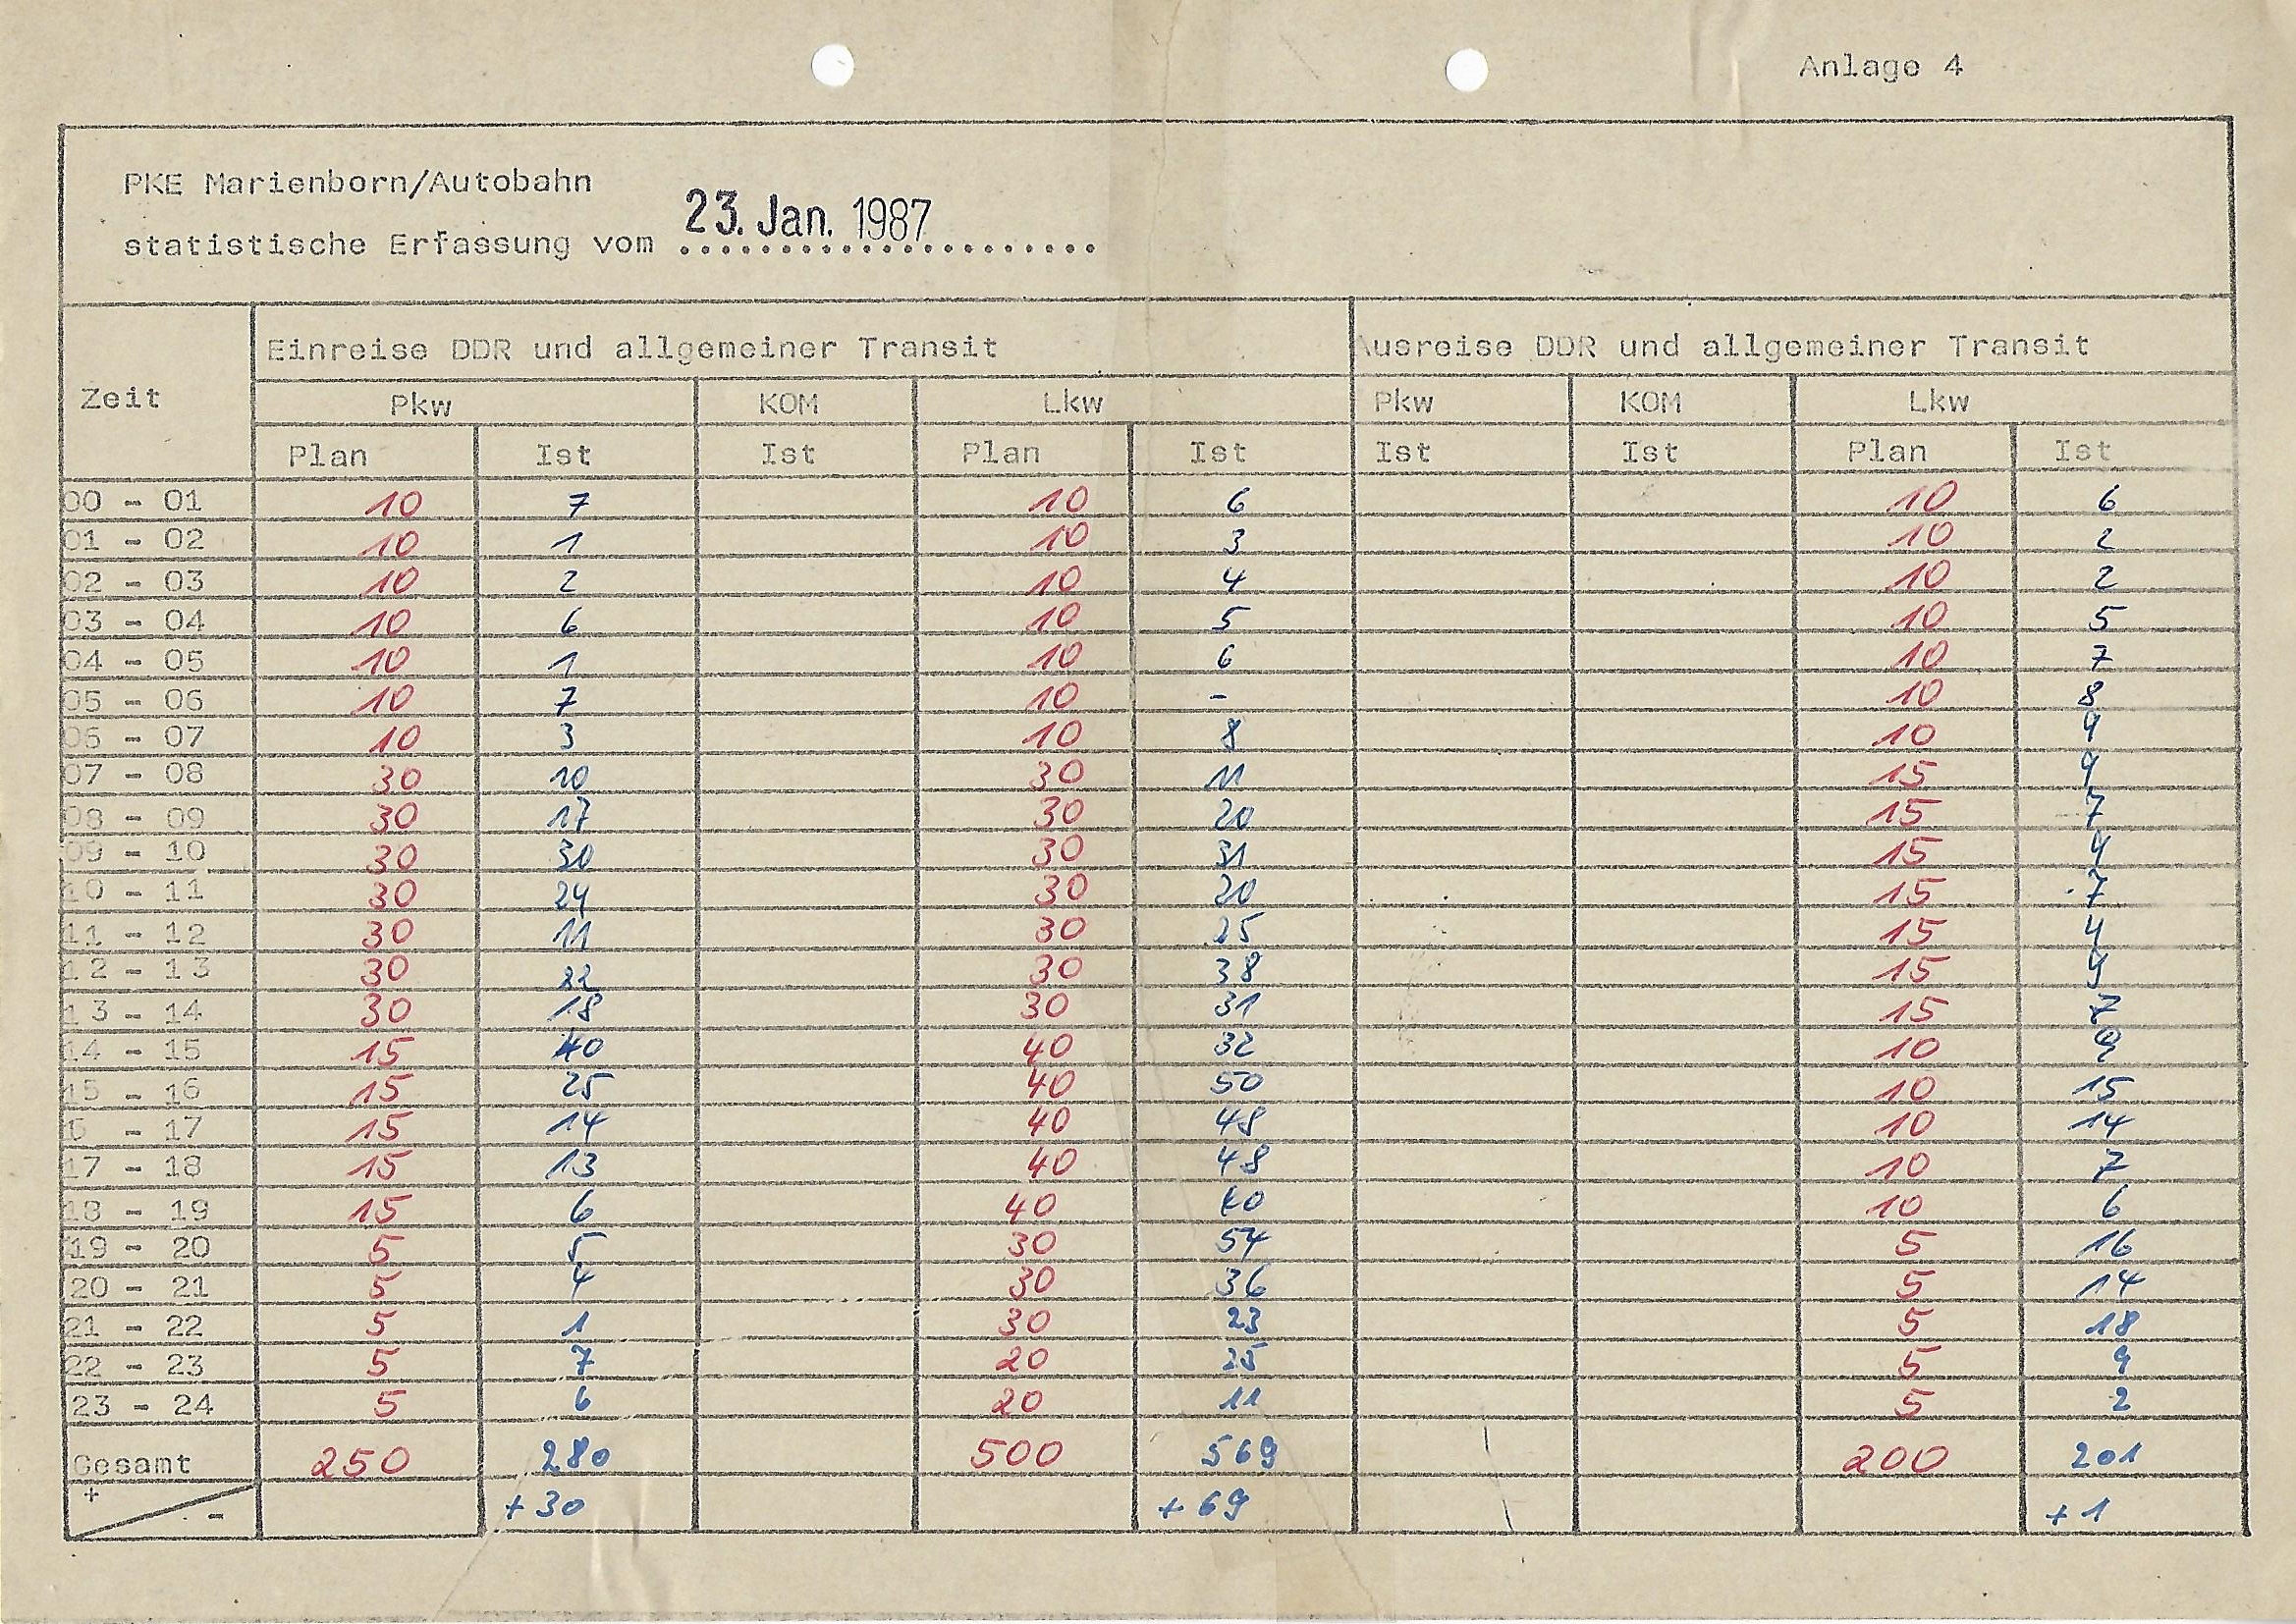 Anlage 4
PKE Marienborn/Autobahn
statistische Erfassung vom 23. Jan. 1987
Zeit
Einreise DDR und allgemeiner Transit
Ausreise DDR und allgemeiner Transit
Pkw KOM Lkw Pkw KOM Lkw
Plan Ist Ist Plan Ist Ist Ist Plan Ist
00 - 01 10 7 10 6 10 6
01 - 02 10 1 10 3 10 2
02 - 03 10 2 10 4 10 2
03 - 04 10 6 10 5 10 5
04 - 05 10 1 10 6 10 7
05 - 06 10 7 10 - 10 8
06 - 07 10 3 10 8 10 9
07 - 08 30 10 30 11 15 9
08 - 09 30 17 30 20 15 7
09 - 10 30 30 30 31 15 4
10 - 11 30 24 30 20 15 7
11 - 12 30 11 30 25 15 4
12 - 13 30 22 30 38 15
13 - 14 30 18 30 31 15 7
14 - 15 15 40 40 32 10 9
15 - 16 15 25 40 50 10 15
- 17 15 14 40 48 10 14
17 - 18 15 13 40 48 10 7
18 - 19 15 6 40 40 10 6
19 - 20 5 5 30 54 5 16
20 - 21 5 4 30 36 5 14
21 - 22 5 1 30 23 5 18
22 - 23 5 7 20 25 5 9
23 - 24 5 6 20 11 5 2
Gesamt 250 280 500 569 200 201
+ - +30 +69 +1